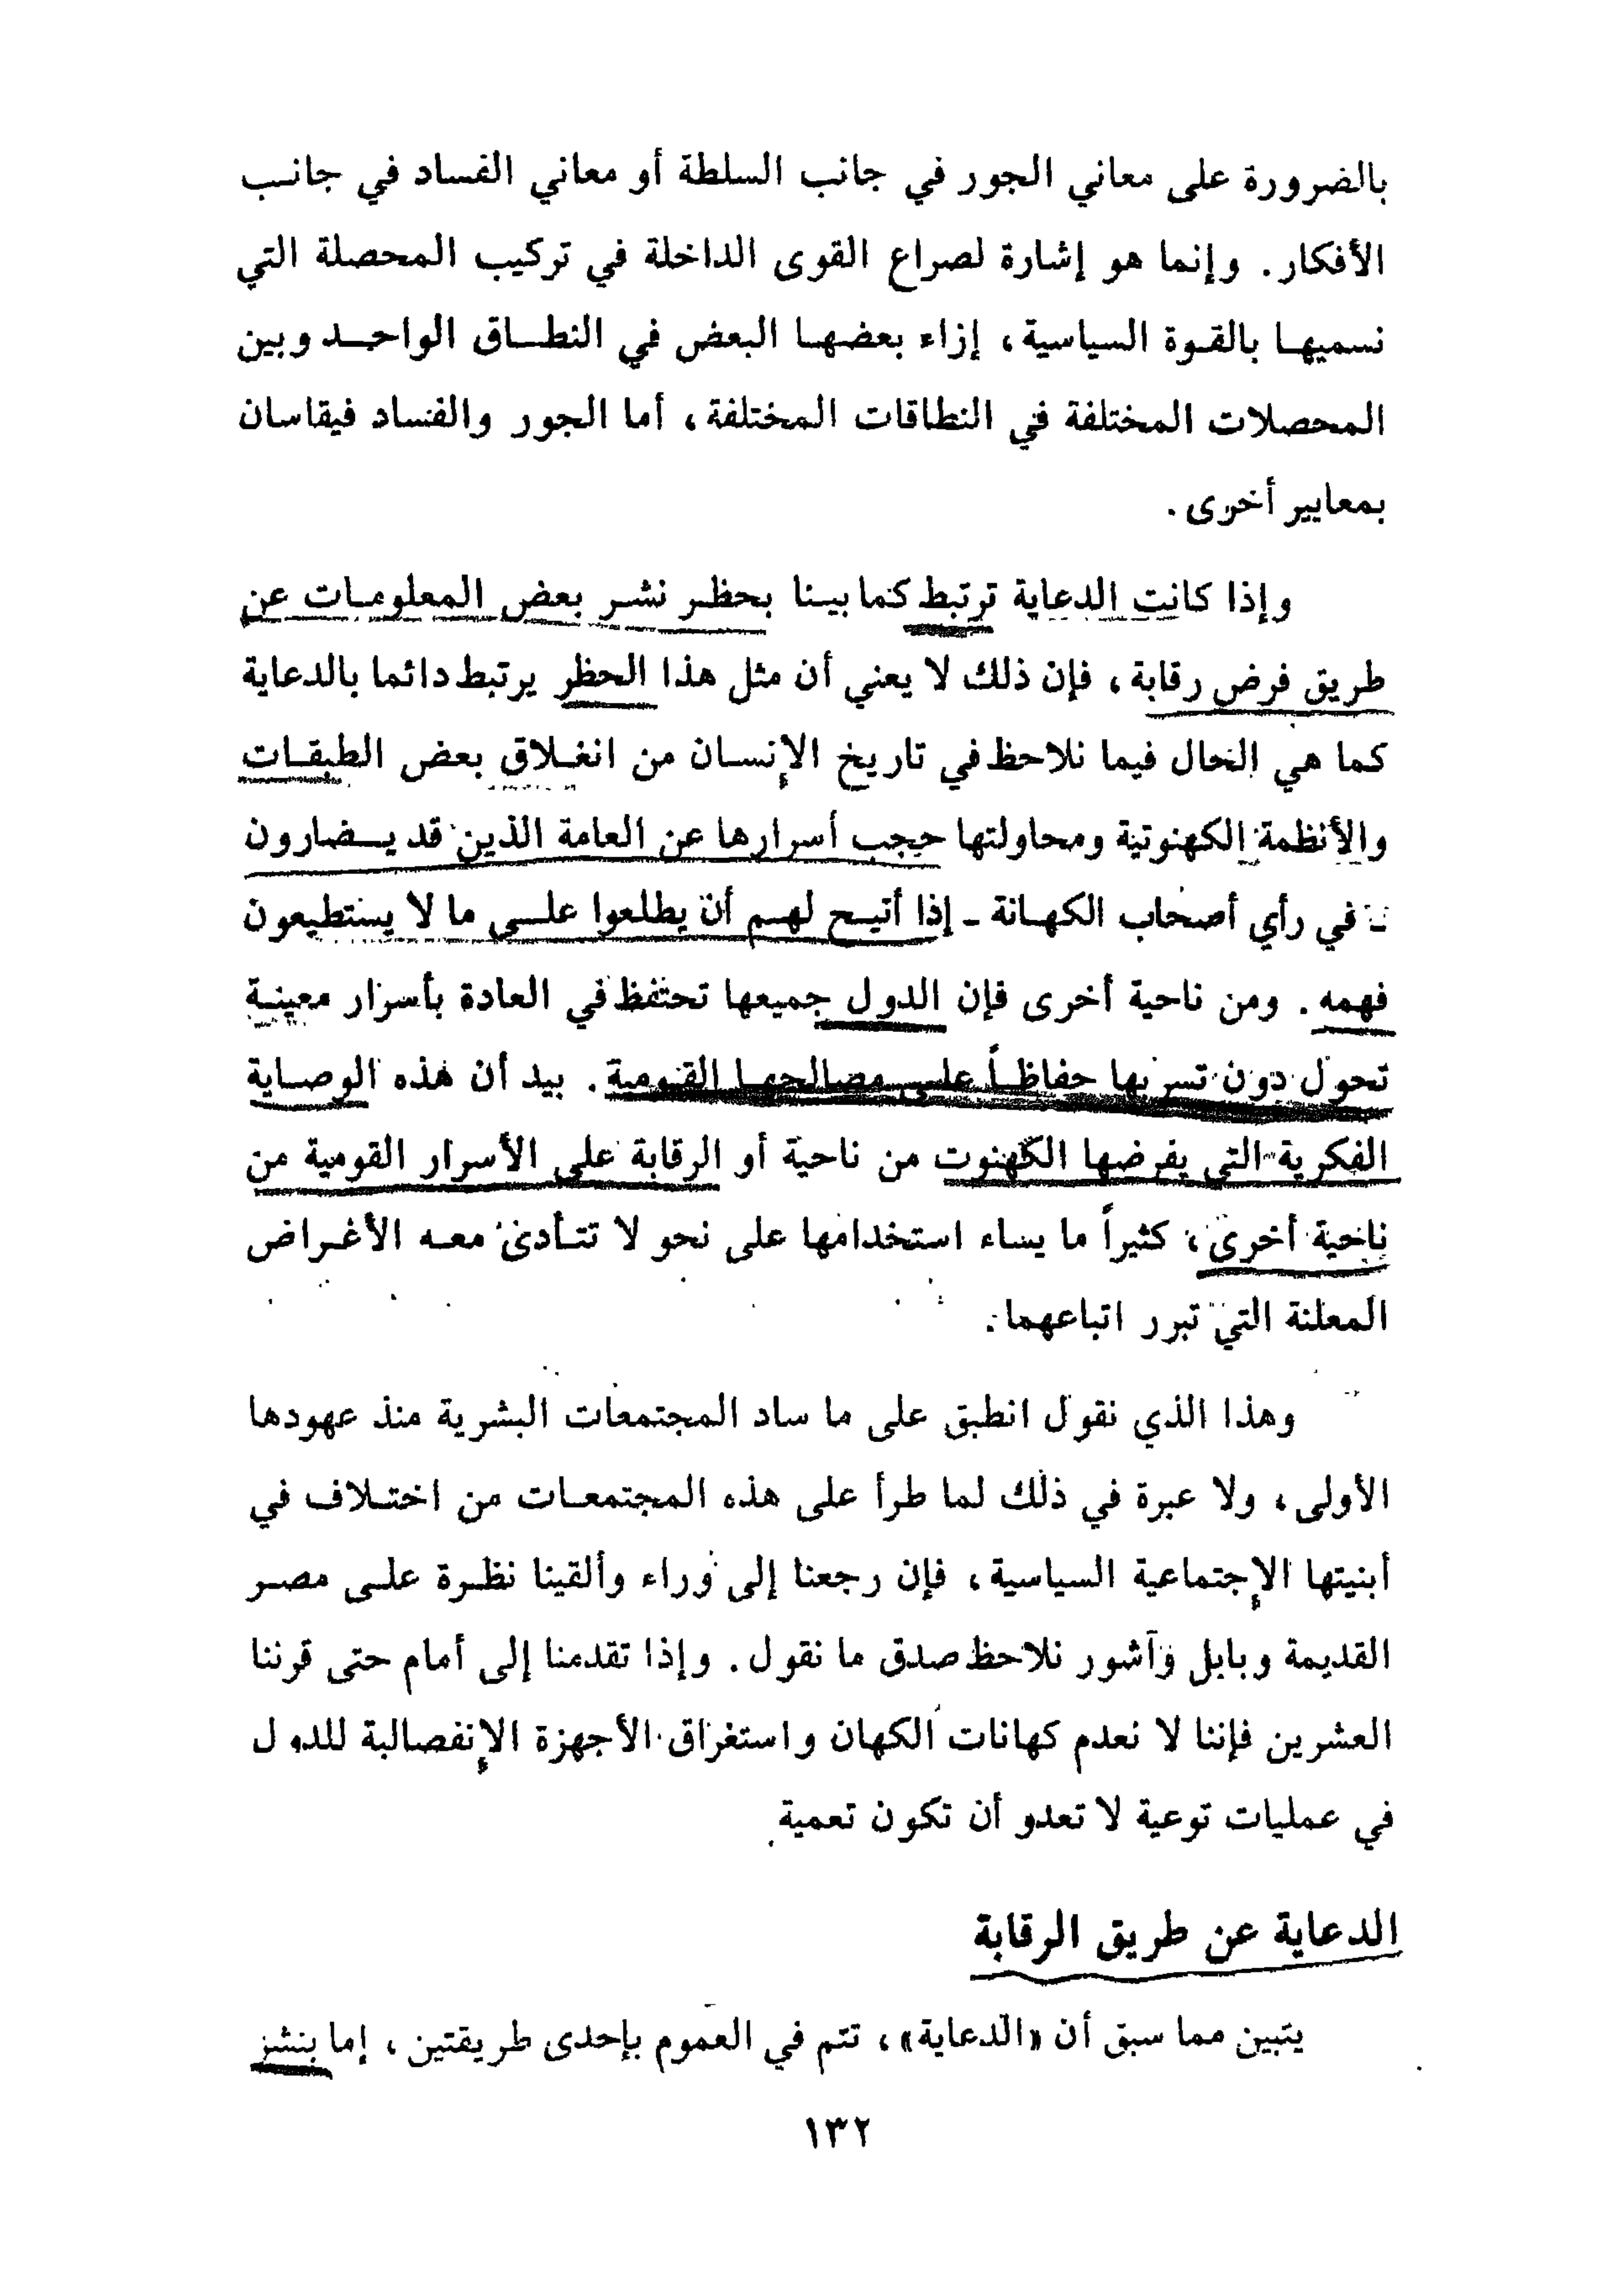 بالضرورة على معاني الجور في جانب السلطة أو معاني الفساد في جانب
الأفكار. وإنما هو إشارة لصراع القوى الداخلة في تركيب المحصلة التي
نسميها بالقوة السياسية، إزاء بعضها البعض في النطاق الواحد وبين
المحصلات المختلفة في النطاقات المختلفة، أما الجور والفساد فيقاسان
بمعايير أخرى.
وإذا كانت الدعاية ترتبط كما بينا بحظر نشر بعض المعلومات عن
طريق فرض رقابة، فإن ذلك لا يعني أن مثل هذا الحظر يرتبط دائما بالدعاية
كما هي الحال فيما نلاحظ في تاريخ الإنسان من انغلاق بعض الطبقات
والأنظمة الكهنوتية ومحاولتها حجب أسرارها عن العامة الذين قد يضارون
- في رأي أصحاب الكهانة - إذا أتيح لهم أن يطلعوا على ما لا يستطيعون
فهمه. ومن ناحية أخرى فإن الدول جميعها تحتفظ في العادة بأسرار معينة
تحول دون تسربها حفاظاً على مصالحها القومية. بيد أن هذه الوصاية
الفكرية التي يفرضها الكهنوت من ناحية أو الرقابة على الأسرار القومية من
ناحية أخرى، كثيراً ما يساء استخدامها على نحو لا تتأدى معه الأغراض
المعلنة التي تبرر اتباعهما.
وهذا الذي نقول انطبق على ما ساد المجتمعات البشرية منذ عهودها
الأولى، ولا عبرة في ذلك لما طرأ على هذه المجتمعات من اختلاف في
أبنيتها الإجتماعية السياسية، فإن رجعنا إلى وراء وألقينا نظرة على مصر
القديمة وبابل وآشور نلاحظ صدق ما نقول. وإذا تقدمنا إلى أمام حتى قرننا
العشرين فإننا لا نعدم كهانات الكهان واستغراق الأجهزة الإنفصالية للدول
في عمليات توعية لا تعدو أن تكون تعمية.
الدعاية عن طريق الرقابة
يتبين مما سبق أن «الدعاية»، تتم في العموم بإحدى طريقتين، إما بنشر
١٣٢